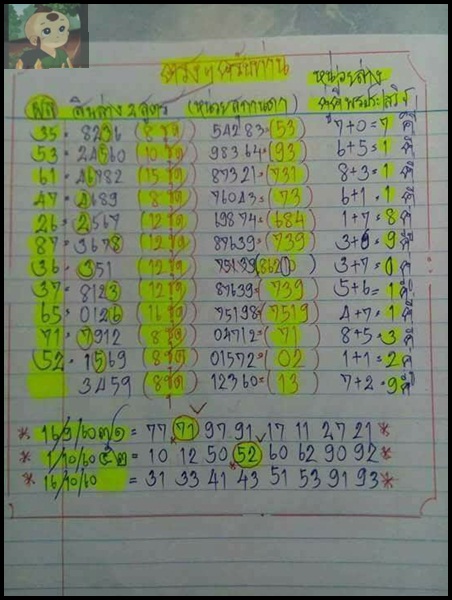 ตรงๆครับท่าน
หน่วยล่าง
ผล ดินล่าง 2 สูตร (หน่วยสูทานตา)
35 = 8236 (8 ชุด) 54283 = (53) 7+0=7 ดี
53 = 24560 (10 ชุด) 98364 = (93) 6+5=1 ดี
61 = 46782 (15 ชุด) 87321 = (731) 8+3=1 ดี
47 = 4689 (8 ชุด) 76043 = (73) 6+1=1 ดี
26 = 2567 (12 ชุด) 19874 = (684) 1+7=8 ดี
87 = 3678 (12 ชุด) 87639 = (739) 3+6=9 ดี
36 = 351 (12 ชุด) 75139 (8620) 3+7=0 ดี
37 = 8123 (12 ชุด) 87639 = (739) 5+6=1 ดี
65 = 0126 (16 ชุด) 75198 = (7519) 4+7=1 ดี
71 = 7912 (8 ชุด) 04712 = (71) 8+5=3 ดี
52 = 1569 (8 ชุด) 01572 = (02) 1+1=2 ดี
3459 (8 ชุด) 12360 = (13) 7+2=9 ดี
* 16/9/60 = 77 71 97 91 17 11 27 21 *
* 1/10/60 = 10 12 50 52 60 62 90 92 *
* 16/10/60 = 31 33 41 43 51 53 91 93 *